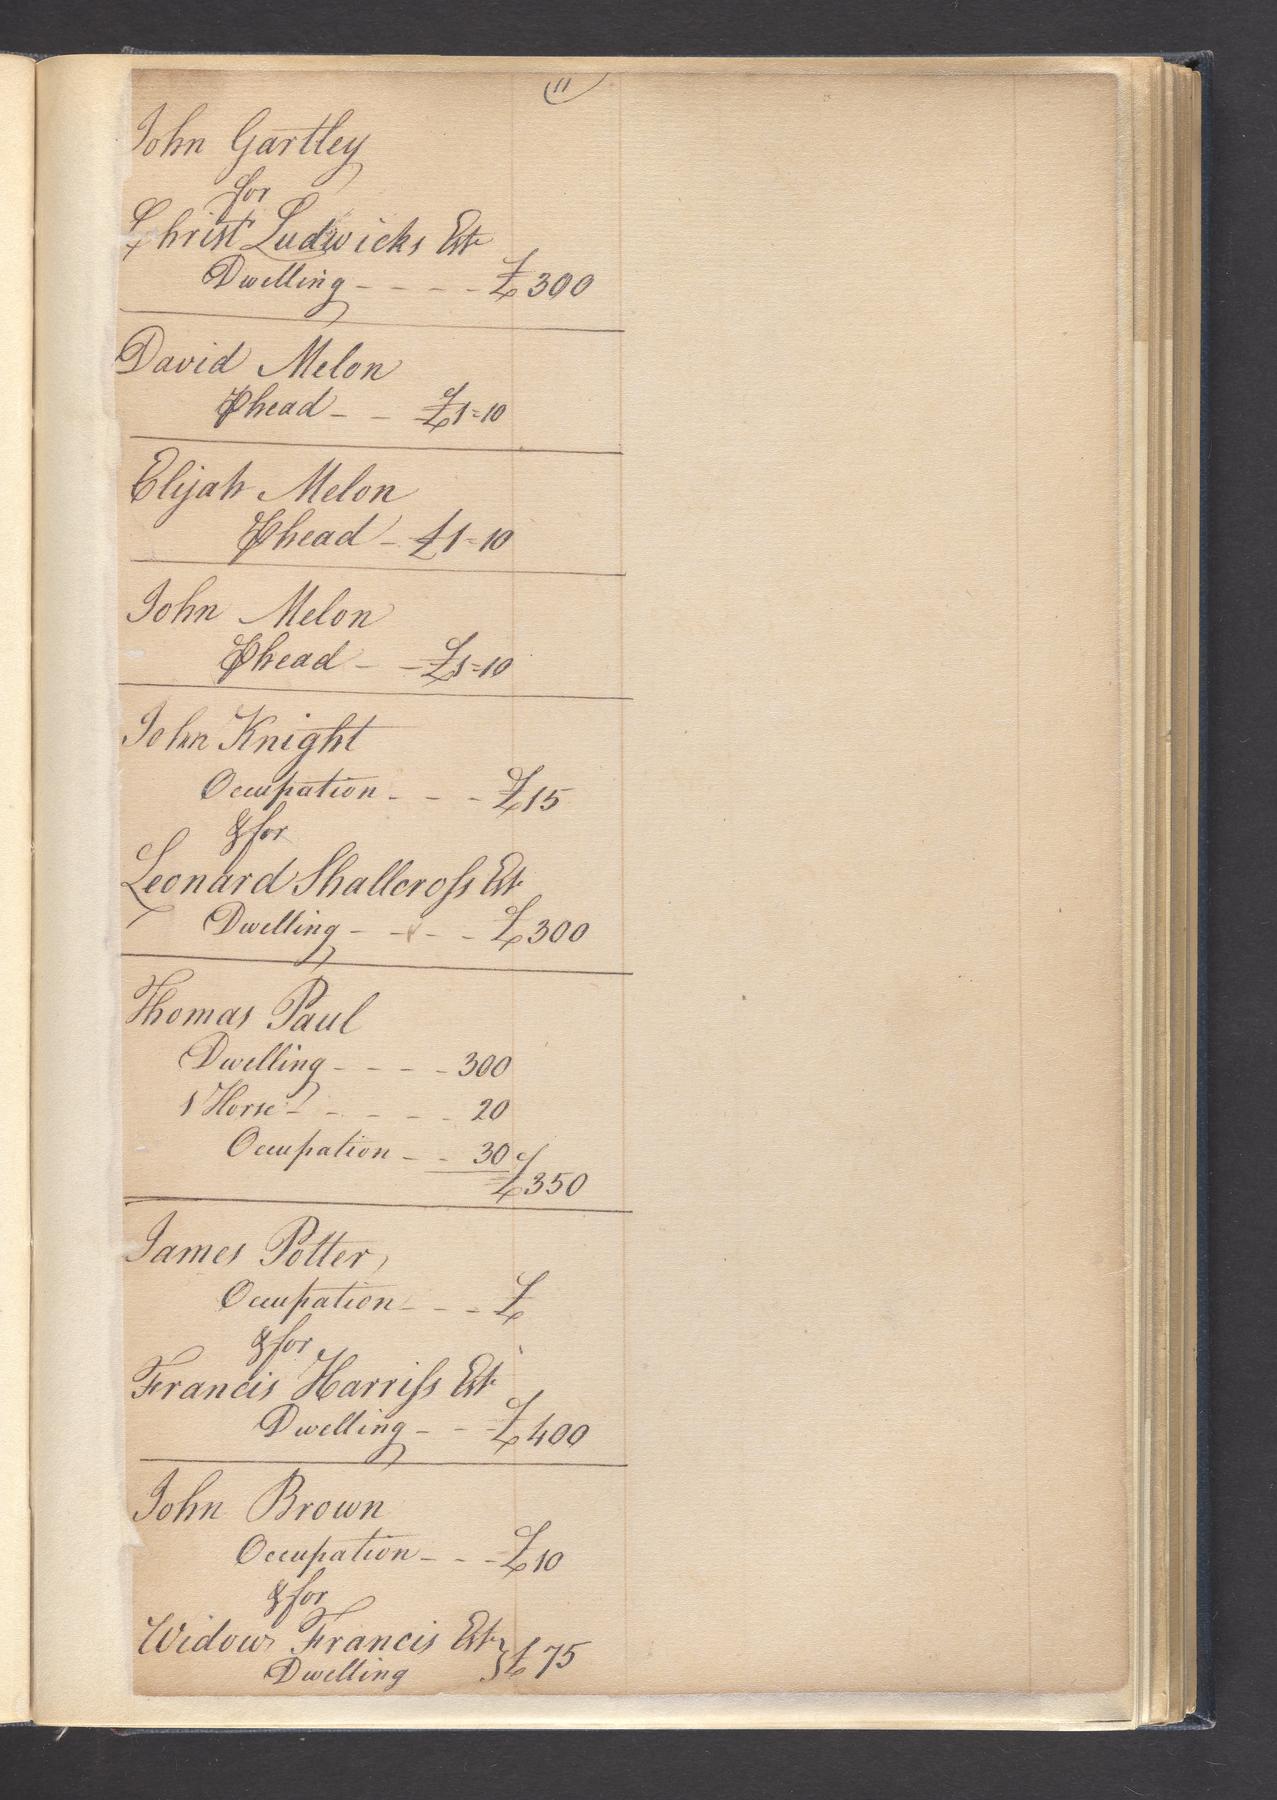 11
John Gartley
for
Christ Ludwicks Est
Dwelling - - - - £300
David Melon
⅌ head - - £1=10
Elijah Melon
⅌ head - £1=10
John Melon
⅌ head - - £1=10
John Knight
Occupation - - - £15
& for
Leonard Shallcroſs Est
Dwelling - - - - £300
Thomas Paul
Dwelling - - - - 300
1 Horse - - - - - 20
Occupation - - 30
£350
James Potter
Occupation - - - £
& for
Francis Harriſs Est
Dwelling - - £400
John Brown
Occupation - - - £10
& for
Widow Francis Est
Dwelling } £75